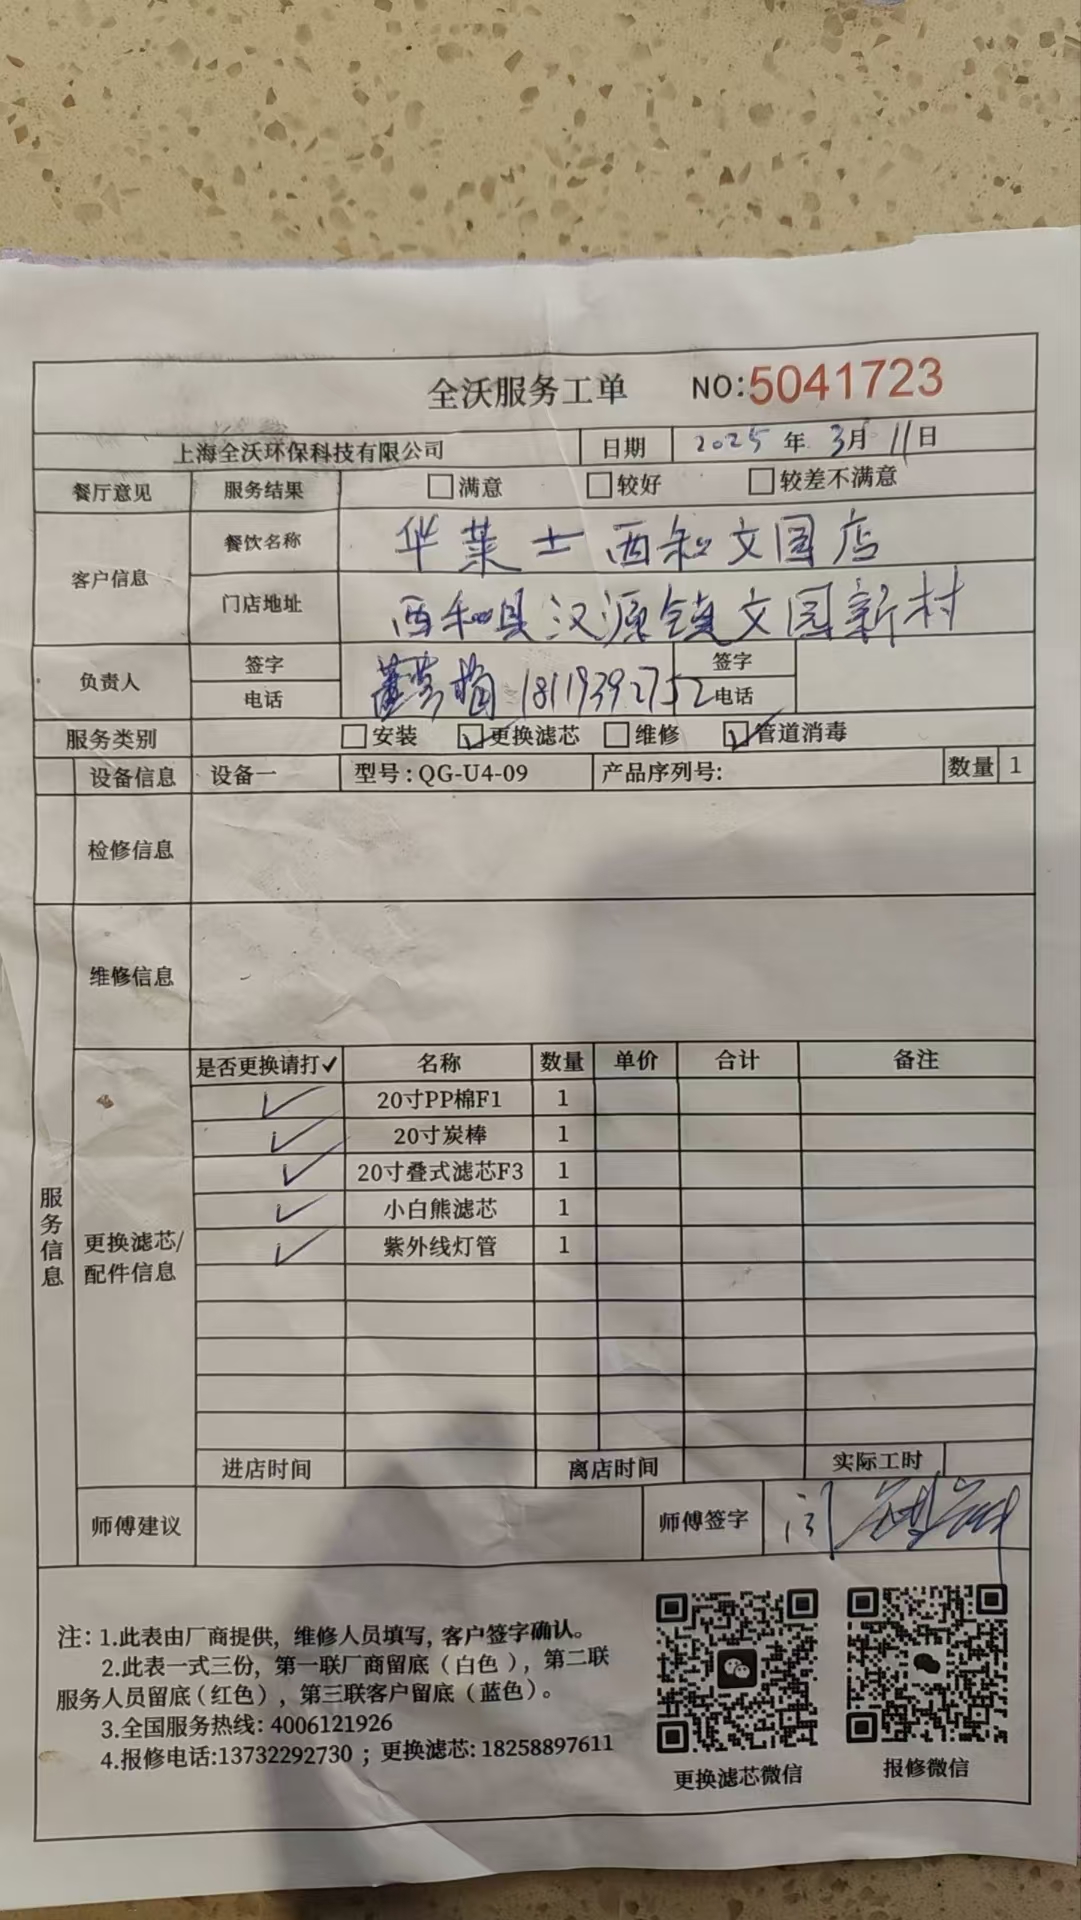 全沃服务工单 NO:5041723
上海全沃环保科技有限公司 日期 2025年3月11日
餐厅意见 服务结果 □满意 □较好 □较差不满意
客户信息 餐饮名称 华莱士西和文园店
门店地址 西和县汉源镇文园新村
负责人 签字 签字
电话 18119392752 电话
服务类别 □安装 ☑更换滤芯 □维修 ☑管道消毒
设备信息 设备一 型号:QG-U4-09 产品序列号: 数量 1
检修信息
维修信息
服务信息
更换滤芯/配件信息
是否更换请打✓ 名称 数量 单价 合计 备注
✓ 20寸PP棉F1 1
✓ 20寸炭棒 1
✓ 20寸叠式滤芯F3 1
✓ 小白熊滤芯 1
✓ 紫外线灯管 1
进店时间 离店时间 实际工时
师傅建议 师傅签字
注: 1.此表由厂商提供, 维修人员填写, 客户签字确认。
2.此表一式三份, 第一联厂商留底(白色), 第二联
服务人员留底(红色), 第三联客户留底(蓝色)。
3.全国服务热线: 4006121926
4.报修电话:13732292730 ; 更换滤芯: 18258897611
更换滤芯微信 报修微信